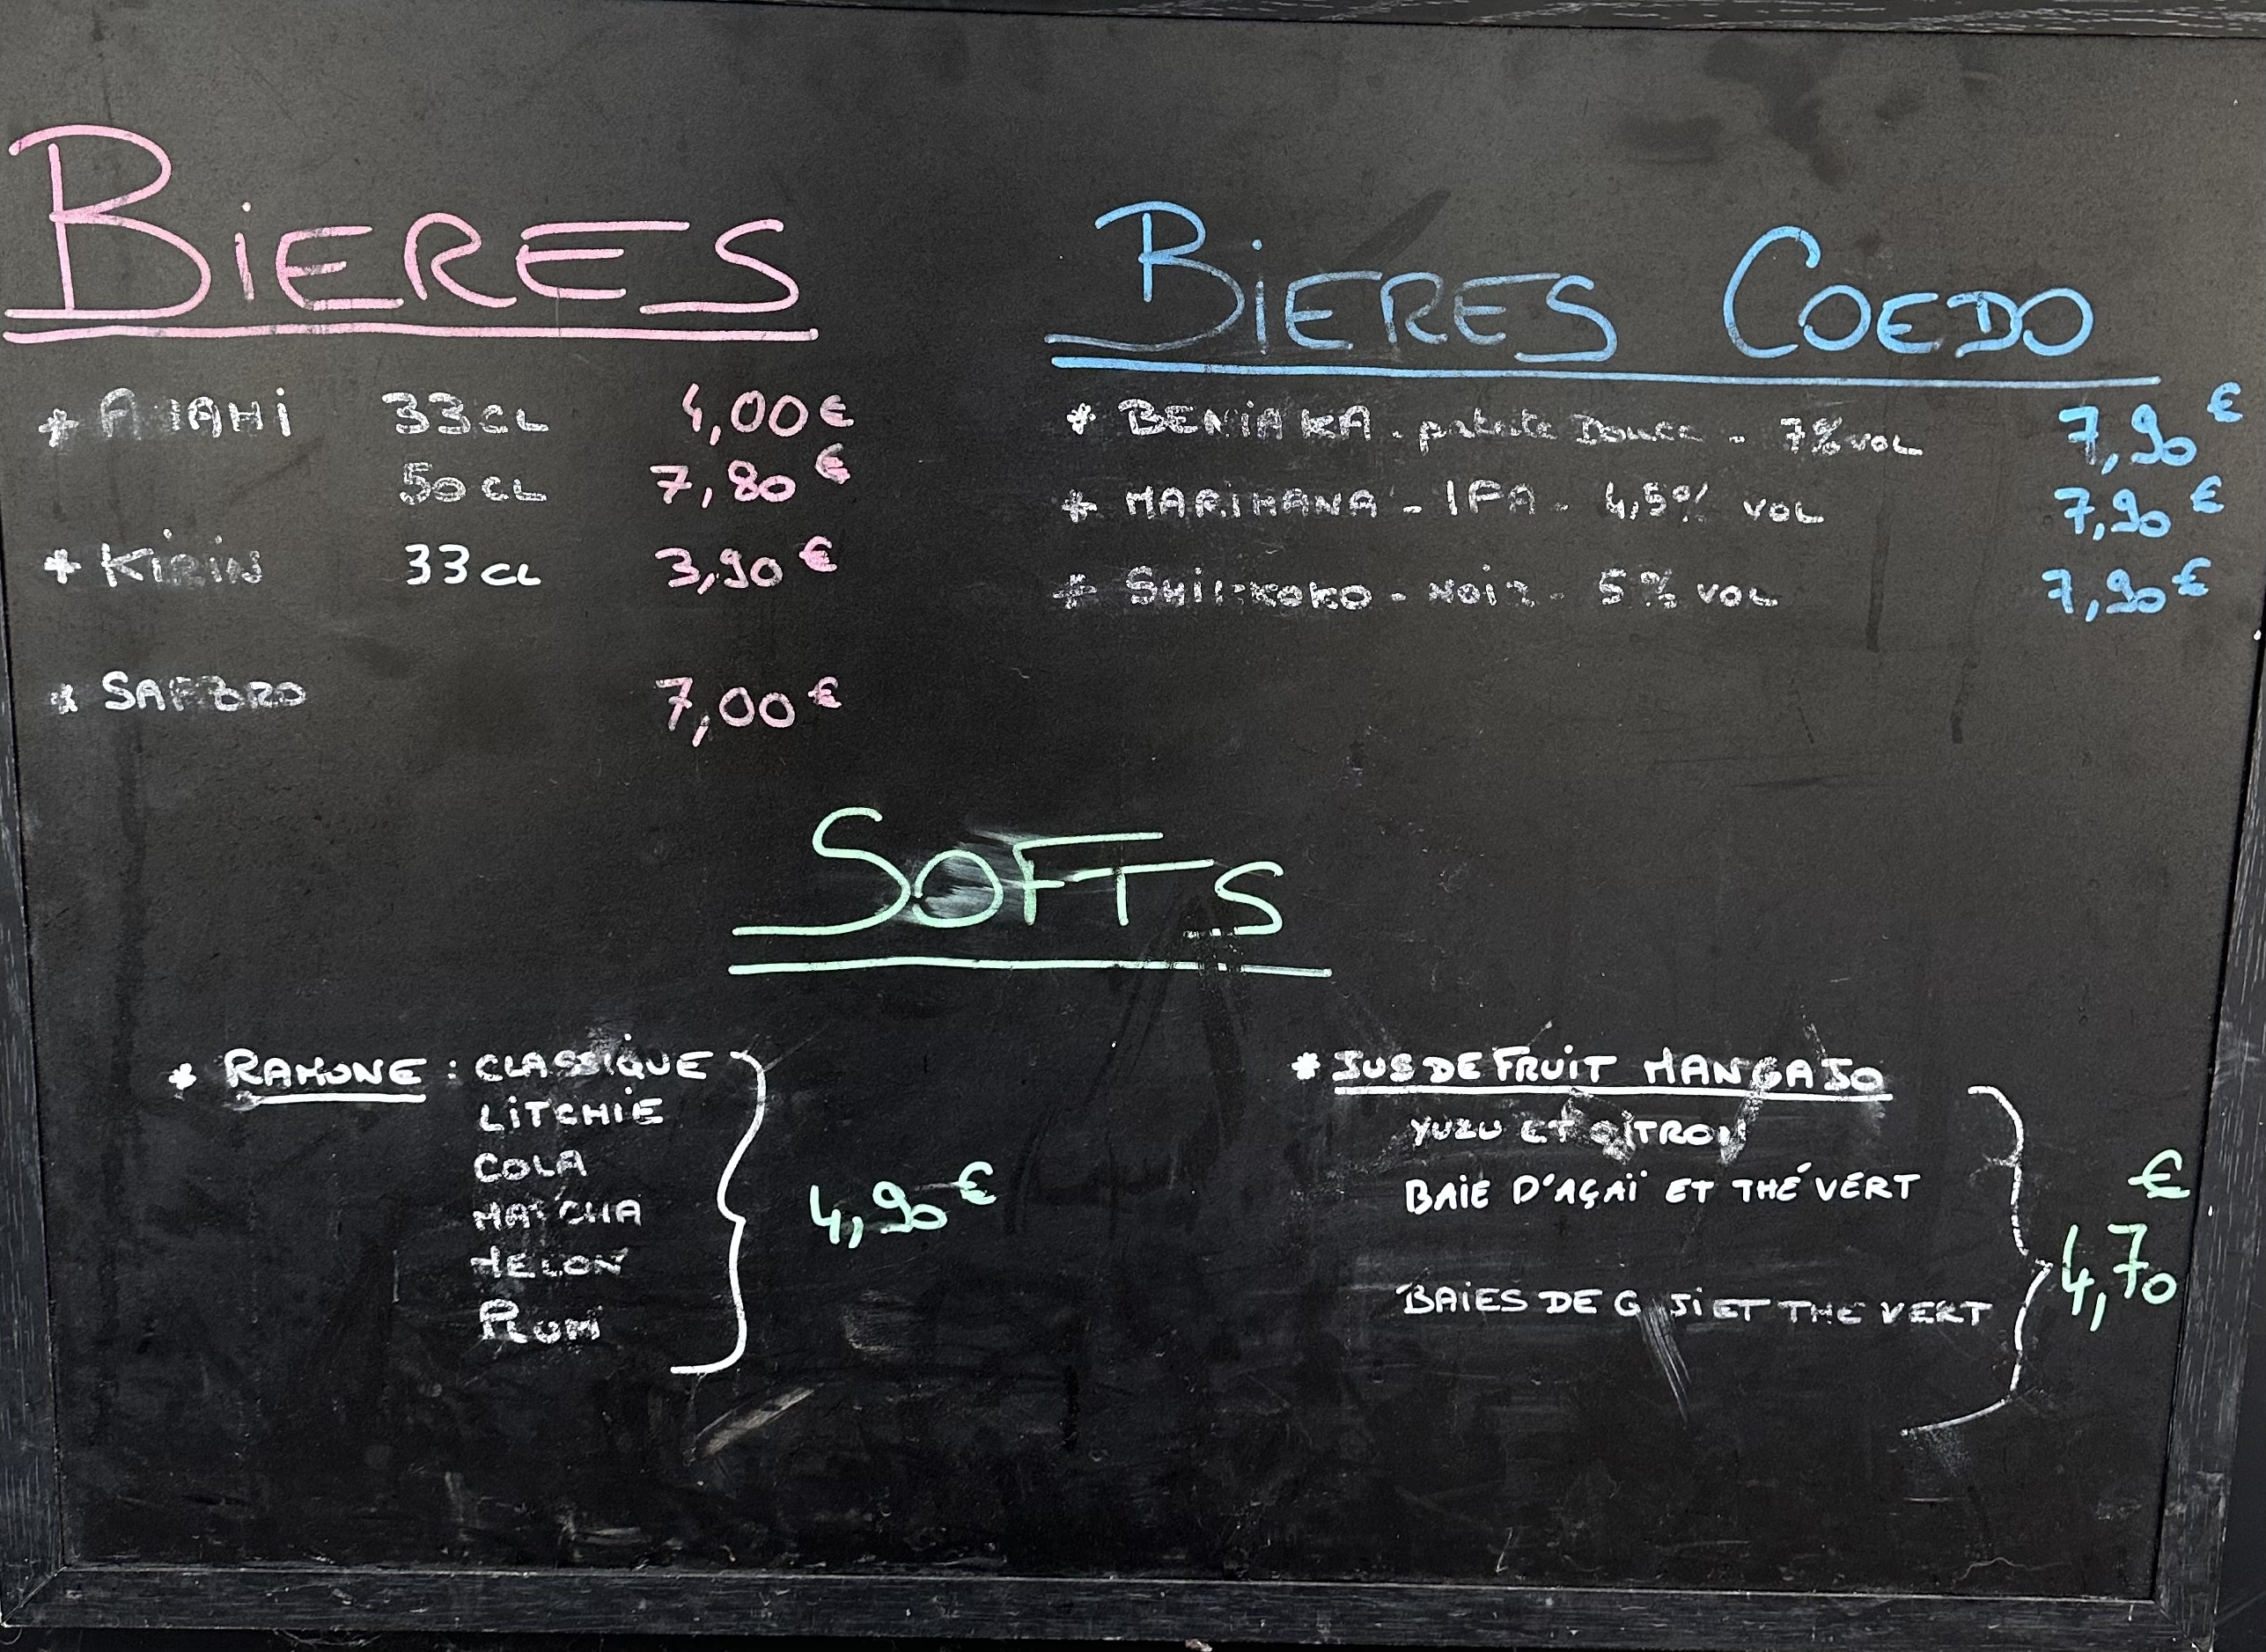 BIERES
* ASAHI 33CL 4,00€
50CL 7,80€
* KIRIN 33CL 3,90€
* SAPPORO 7,00€
BIERES COEDO
* BENIAKA - patate Douce - 7% VOL 7,90€
* MARIHANA - IPA - 4,5% VOL 7,90€
* SHIKKOKO - NOIR - 5% VOL 7,90€
SOFTS
* RAMUNE : CLASSIQUE
LITCHIE
COLA
MATCHA
MELON
4,90€
* JUS DE FRUIT MANGAJO
YUZU ET CITRON
BAIE D'AÇAÏ ET THÉ VERT
BAIES DE GOJI ET THE VERT
4,70 €